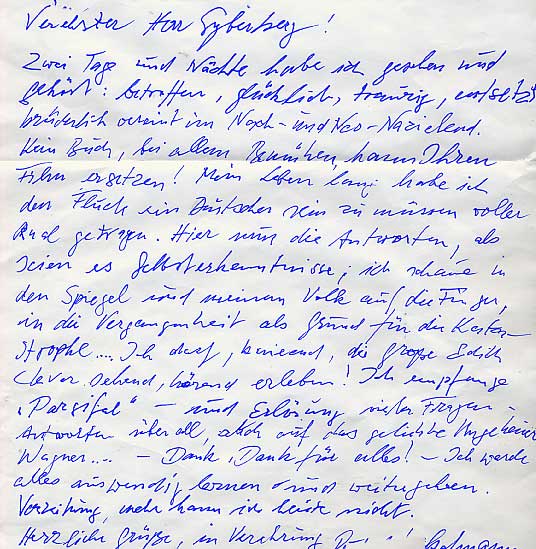 Verehrter Herr Syberberg!
Zwei Tage und Nächte habe ich gesehen und
gehört: betroffen, glücklich, traurig, entsetzt
brüderlich vereint im Noch- und Neo-Nazielend.
Kein Buch, bei allem Bemühen, kann Ihren
Film ersetzen! Mein Leben lang habe ich
den Fluch ein Deutscher sein zu müssen voller
Qual getragen. Hier nun die Antworten, als
seien es Selbsterkenntnisse; ich schaue in
den Spiegel und meinem Volk auf die Finger,
in die Vergangenheit als Grund für die Kata-
strophe.... Ich darf, knieend, die große Edith
Clever sehend, hörend erleben! Ich empfange
"Parsifal" – und Erlösung vieler Fragen –
Antworten überall, auch auf das geliebte Ungeheuer
Wagner.... – Dank, Dank für alles! – Ich werde
alles auswendig lernen und weitergeben.
Verzeihung, mehr kann ich heute nicht.
Herzliche Grüße, in Verehrung